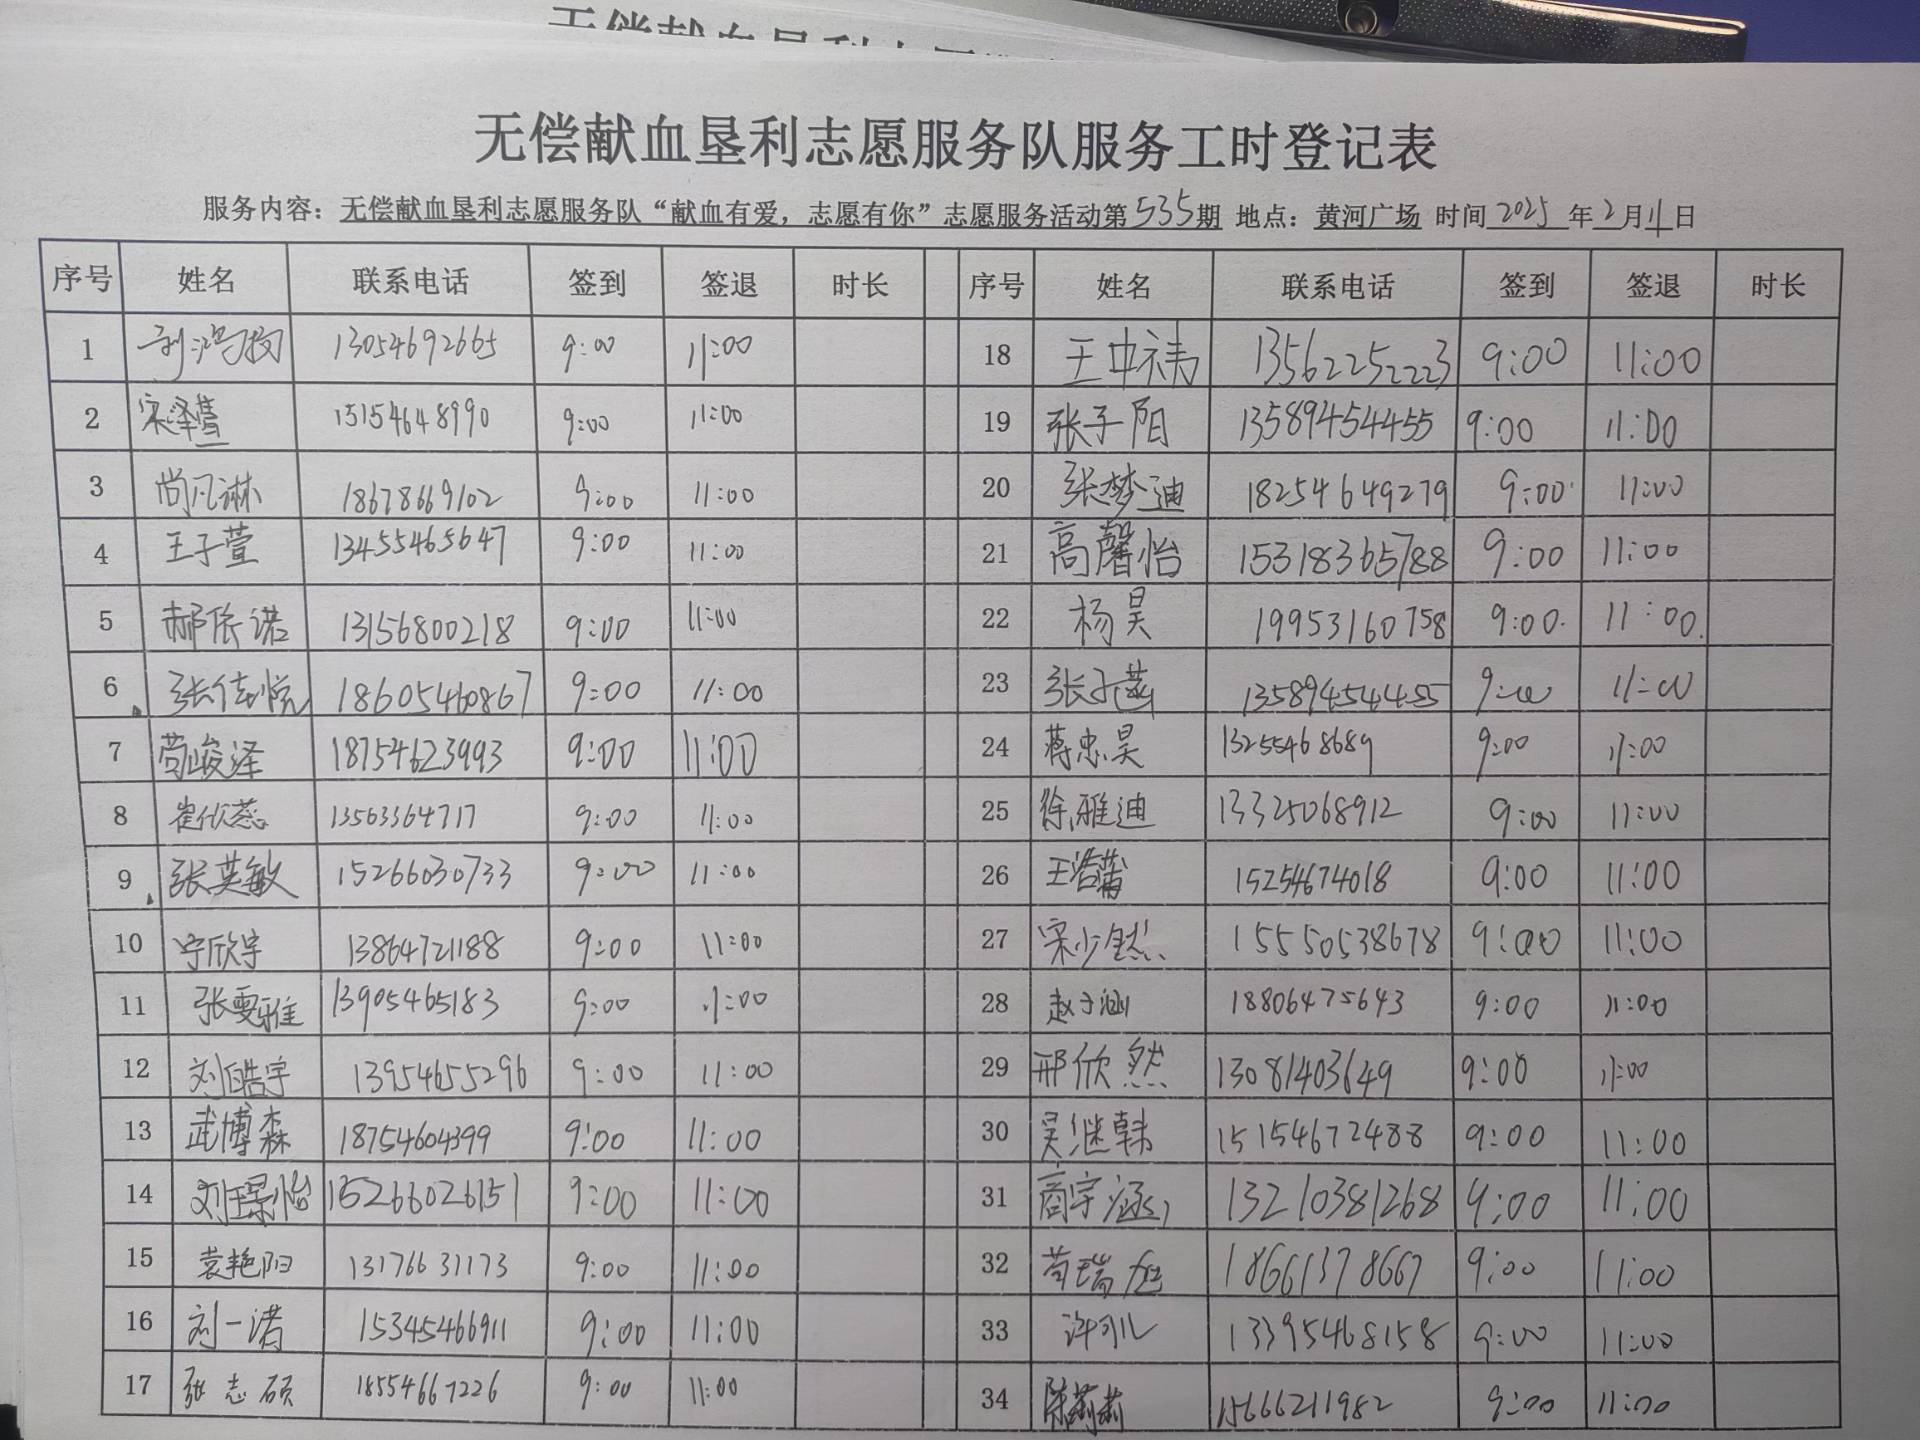 无偿献血垦利志愿服务队服务工时登记表
服务内容：无偿献血垦利志愿服务队“献血有爱，志愿有你”志愿服务活动第535期 地点：黄河广场 时间 2025 年 2 月 11 日
序号 姓名 联系电话 签到 签退 时长 序号 姓名 联系电话 签到 签退 时长
1 13054692665 9:00 11:00 18 王中祎 13562252223 9:00 11:00
2 宋泽萱 15154648990 9:00 11:00 19 张子阳 13589454455 9:00 11:00
3 尚凡淋 18678669102 9:00 11:00 20 张梦迪 18254649279 9:00 11:00
4 王子萱 13455465647 9:00 11:00 21 高馨怡 15318365788 9:00 11:00
5 郝依诺 13156800218 9:00 11:00 22 杨昊 19953160758 9:00 11:00
6 张佳悦 18605460867 9:00 11:00 23 张子菡 13589454455 9:00 11:00
7 苟峻泽 18754623993 9:00 11:00 24 蒋忠昊 13255468689 9:00 11:00
8 崔欣蕊 13563364717 9:00 11:00 25 徐雅迪 13325068912 9:00 11:00
9 张英敏 15266030733 9:00 11:00 26 王浩 15254674018 9:00 11:00
10 宁欣宇 13864721188 9:00 11:00 27 宋少然 15550538678 9:00 11:00
11 张雯雅 13905465183 9:00 11:00 28 赵子涵 18806475643 9:00 11:00
12 刘皓宇 13954655296 9:00 11:00 29 邢欣然 13081403649 9:00 11:00
13 武博森 18754604399 9:00 11:00 30 吴继韩 15154672488 9:00 11:00
14 刘璟怡 15266026151 9:00 11:00 31 商宇涵 13210381268 9:00 11:00
15 袁艳阳 13176631173 9:00 11:00 32 苟瑞旭 18661378667 9:00 11:00
16 刘一诺 15345466911 9:00 11:00 33 许可儿 13395468158 9:00 11:00
17 张志硕 18554667226 9:00 11:00 34 陈莉莉 15666211982 9:00 11:00